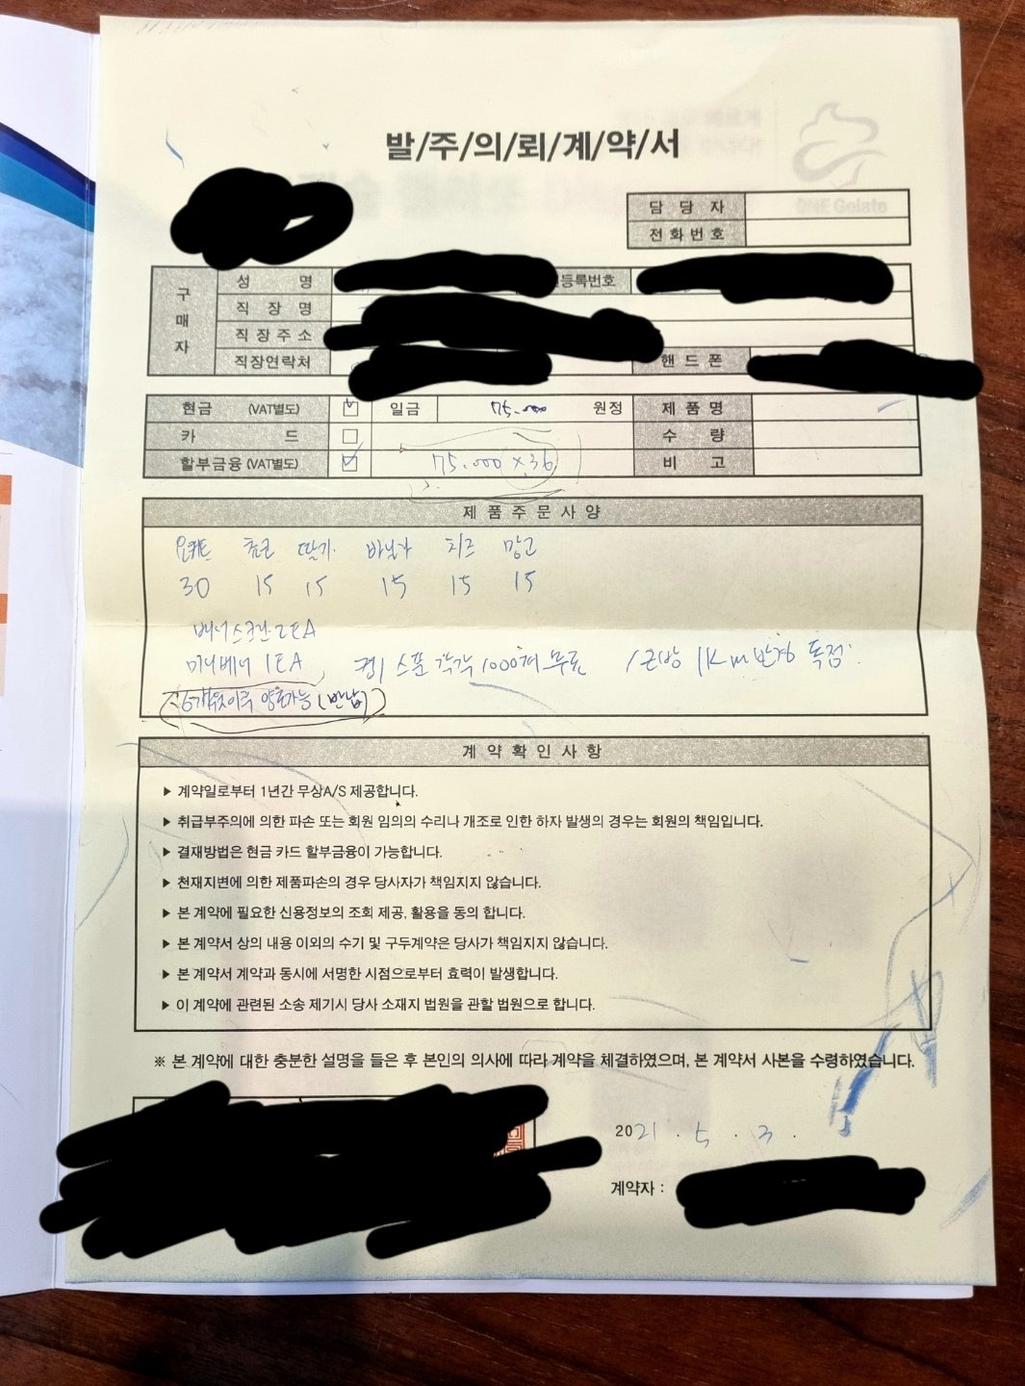 발/주/의/뢰/계/약/서
담 당 자
전화번호
ONE Gelato
구매자
성 명
등록번호
직 장 명
직장주소
직장연락처
핸드폰
현금 (VAT별도) 일금 75.000 원정 제품명
카 드 수 량
할부금융 (VAT별도) 75.000 × 36 비 고
제 품 주 문 사 양
요거트 초코 딸기 바닐라 치즈 망고
30 15 15 15 15 15
배너스크린 2EA
미니배너 1EA 컵/스푼 각각 1000개 무료 / 근방 1Km 반경 독점
6개월이후 양도가능 (반납)
계 약 확 인 사 항
▶ 계약일로부터 1년간 무상A/S 제공합니다.
▶ 취급부주의에 의한 파손 또는 회원 임의의 수리나 개조로 인한 하자 발생의 경우는 회원의 책임입니다.
▶ 결재방법은 현금 카드 할부금융이 가능합니다.
▶ 천재지변에 의한 제품파손의 경우 당사자가 책임지지 않습니다.
▶ 본 계약에 필요한 신용정보의 조회 제공, 활용을 동의 합니다.
▶ 본 계약서 상의 내용 이외의 수기 및 구두계약은 당사가 책임지지 않습니다.
▶ 본 계약서 계약과 동시에 서명한 시점으로부터 효력이 발생합니다.
▶ 이 계약에 관련된 소송 제기시 당사 소재지 법원을 관할 법원으로 합니다.
※ 본 계약에 대한 충분한 설명을 들은 후 본인의 의사에 따라 계약을 체결하였으며, 본 계약서 사본을 수령하였습니다.
2021 . 5 . 3 .
계약자 :